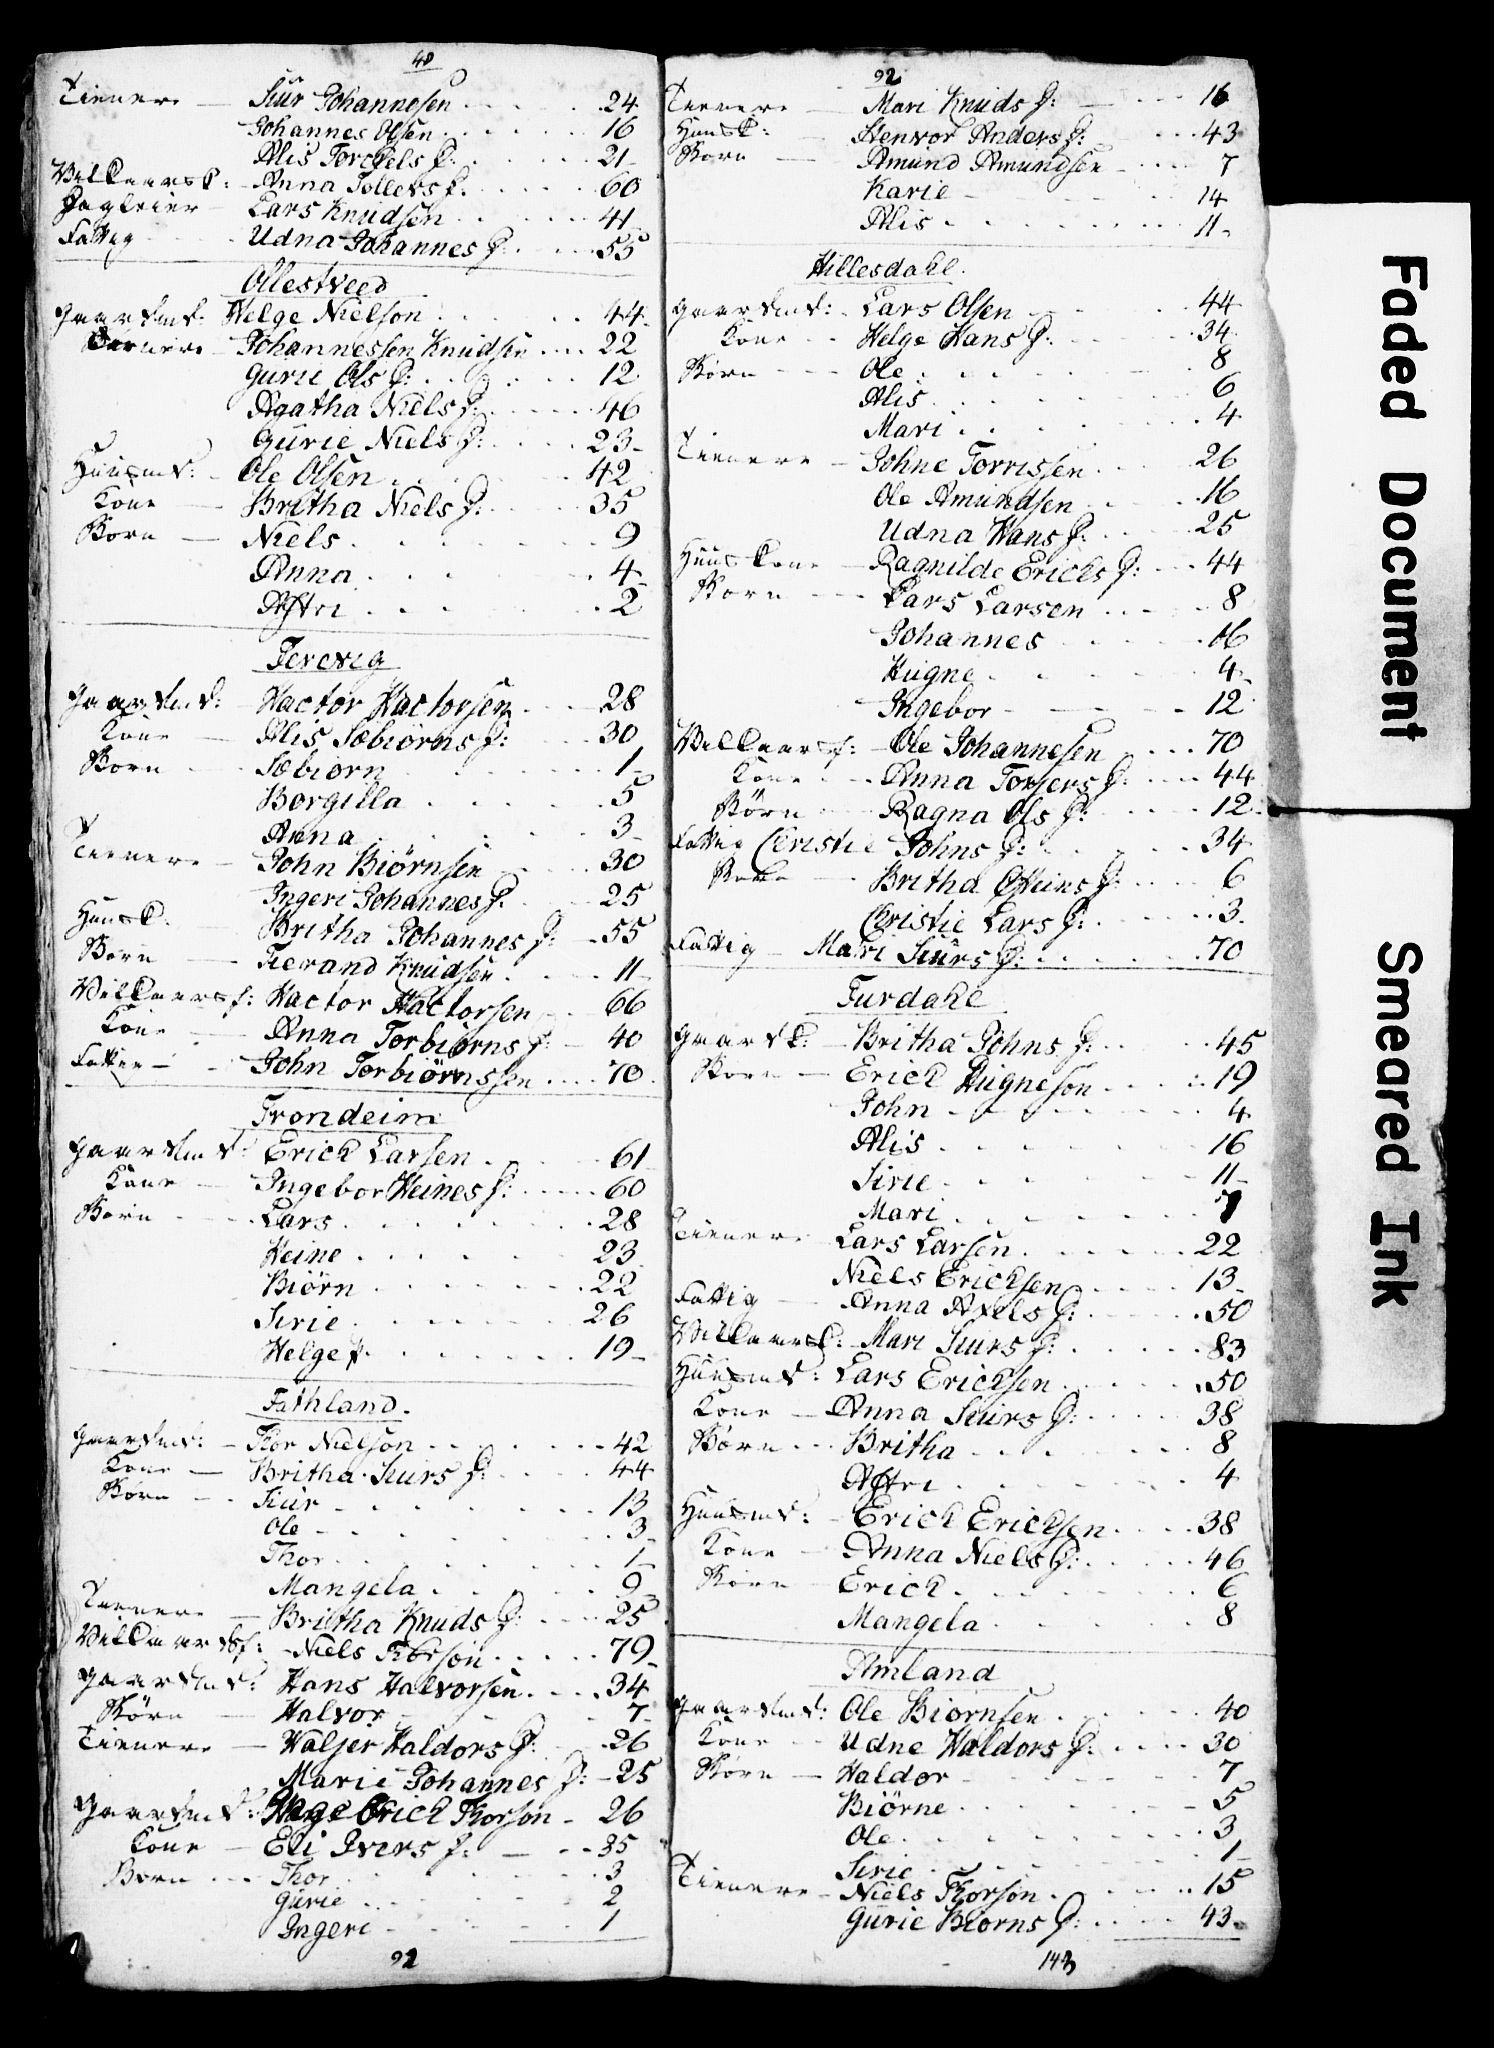 48
Tienere — Siur Johannesen 24
Johannes Olsen 16
Alis Torchels D: 21
Vilkaarsk: Anna Tollers D: 60
Dagleier Lars Knudsen 41
Fattig Udna Johannes D: 55
Ollestveed
Gaardmd: Helge Nielson 44
Tienere Johannessen Knudsen 22
Gurie Ols D: 12
Agatha Niels D: 46
Gurie Niels D: 23
Huusmd: Ole Olsen 42
Kone Britha Niels D: 35
Born Niels 9
Anna 4
Astri 2
Terevig
Gaardmd: Hactor Hactorsen 28
Kone Alis Sæbiørns D: 30
Born Sæbiorn 1
Borgilla 5
Anna 3
Tienere John Biørnsen 30
Ingeri Johannes D: 25
Huusk: Britha Johannes D: 55
Born Tierand Knudsen 11
Vilkaarsf: Hactor Hactorsen 66
Kone Anna Torbiorns D: 40
Fattig John Torbiørnssen 70
Trondeim
Gaardmd: Erick Larsen 61
Kone Ingebor Heines D: 60
Born Lars 28
Heine 23
Biørn 22
Sirie 26
Helge 19
Fathland.
Gaardmd: Thor Nielson 42
Kone Britha Siurs D: 44
Børn Siur 13
Ole 3
Thor 1
Mangela 9
Tienere Britha Knuds D: 25
Vilkaarsf: Niels Thorson 79
Gaardmd: Hans Halvorsen 34
Børn Halvor 7
Tienere Valjer Haldors D: 26
Marie Johannes D: 25
Gaardmd: Erick Thorson 26
Kone Eli Ivers D: 35
Born Thor 3
Gurie 2
Ingeri 1
92
92
Tienere Mari Knuds D: 16
Huusk: Stenvor Anders D: 43
Born Amund Amundsen 7
Karie 14
Alis 11
Hillesdahl.
Gaardmd: Lars Olsen 44
Kone Helge Hans D: 34
Børn Ole 8
Alis 6
Mari 4
Tienere Johne Torrissen 26
Ole Amundsen 16
Udna Hans D: 25
Huuskone Ragnilde Ericks D: 44
Born Lars Larsen 8
Johannes 16
Hugne 4
Ingebor 12
Vilkaarsf: Ole Johannesen 70
Kone Anna Torjers D: 44
Børn Ragna Ols D: 12
Fattig Christie Johns D: 34
Born Britha D: 6
Christie Lars D: 3
Fattig Mari Siurs D: 70
Furdahl
Gaardk: Britha Johns D: 45
Born Erick Hugneson 19
John 4
Alis 16
Sirie 11
Mari 7
Tienere Lars Larsen 22
Niels Ericksen 13
Fattig Anna Axels D: 50
Vilkaarsk: Mari Siurs D: 83
Huusmd: Lars Ericksen 50
Kone Anna Siurs D: 38
Børn Britha 8
Astri 4
Huusmd: Erick Ericksen 38
Kone Anna Niels D: 46
Børn Erick 6
Mangela 8
Amland
Gaardmd: Ole Biørnsen 40
Kone Udne Haldors D: 30
Børn Haldor 7
Biørne 5
Ole 3
Sirie 1
Tienere Niels Thorson 15
Gurie Biorns D: 43
143
Faded Document
Smeared Ink